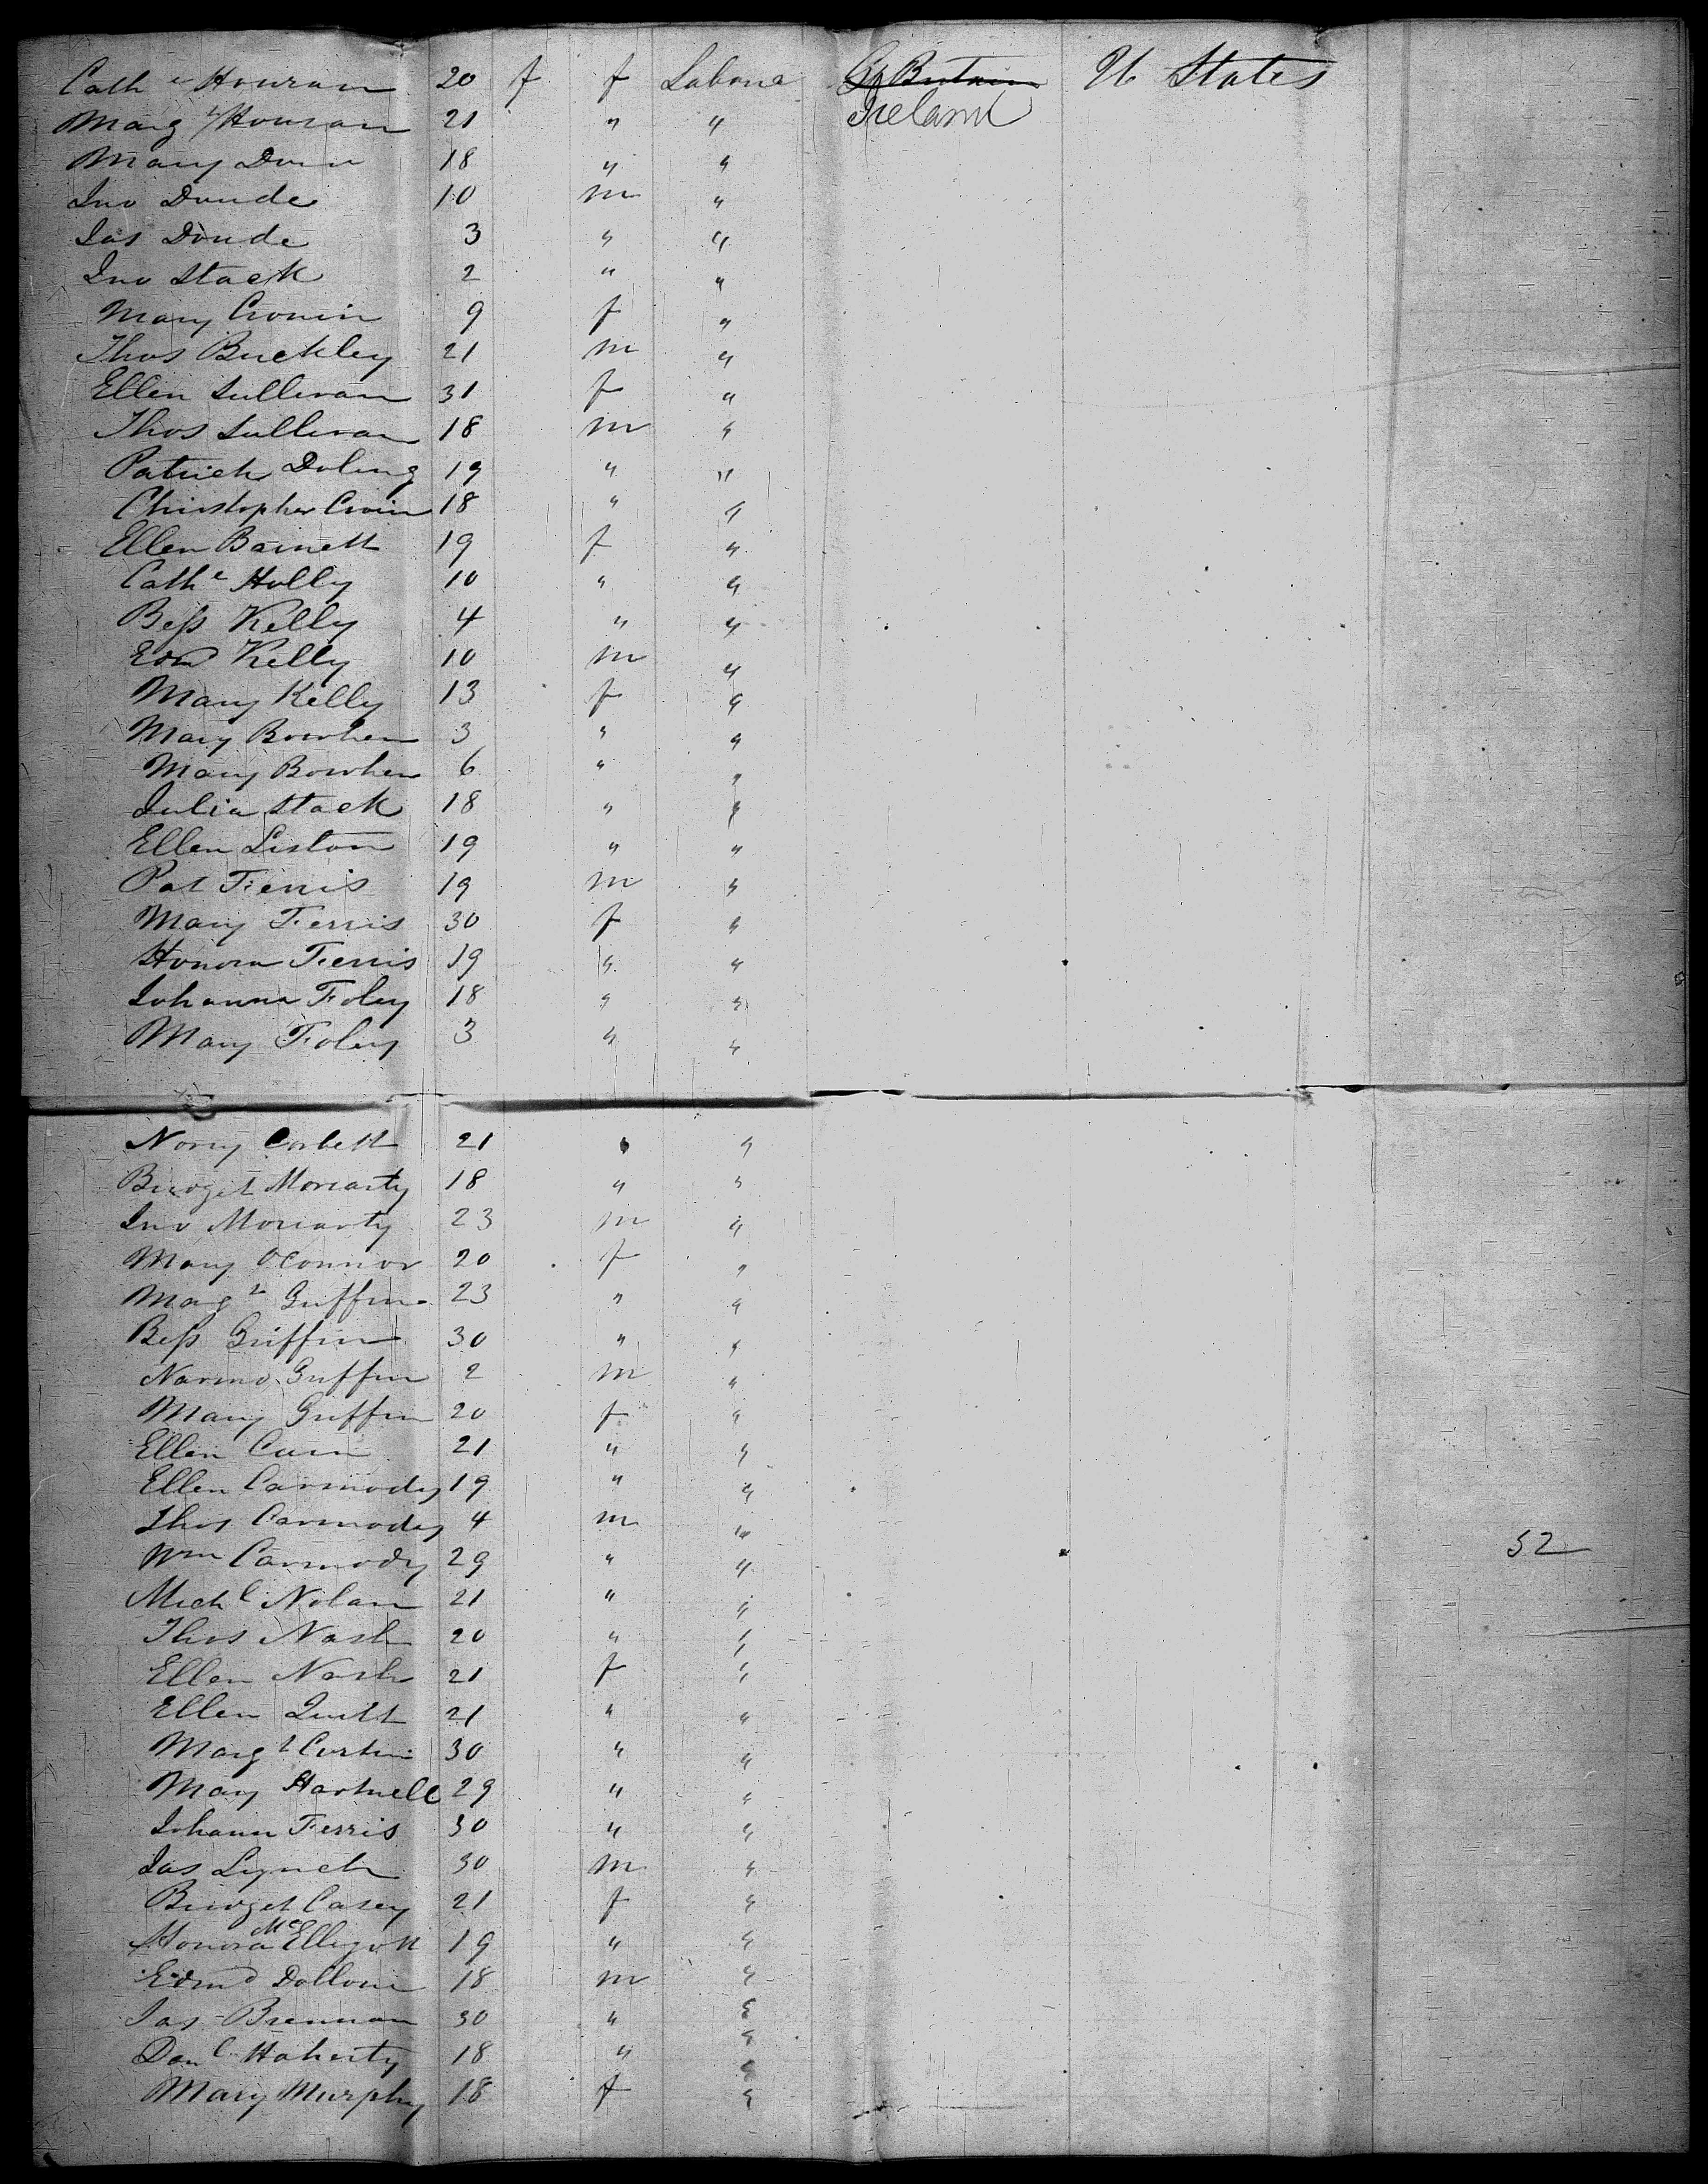 Cath e Houran 20 f f Labore Gt Britain U States
Marg t Houran 21 " " Ireland
Mary Dunn 18 " "
Jno Doude 10 m "
Jas Doude 3 " "
Jno Stack 2 " "
Mary Cronin 9 f "
Thos Buckley 21 m "
Ellen Sullivan 31 f "
Thos Sullivan 18 m "
Patrick Doling 19 " "
Christopher Cronin 18 " "
Ellen Barnett 19 f "
Cath e Holly 10 " "
Bess Kelly 4 " "
Edm Kelly 10 m "
Mary Kelly 13 f "
Mary Bowhen 3 " "
Mary Bowhen 6 " "
Julia Stack 18 " "
Ellen Liston 19 " "
Pat Ferris 19 m "
Mary Ferris 30 f "
Honora Ferris 19 " "
Johanna Foley 18 " "
Mary Foley 3 " "
Nory Corbett 21 " "
Bridget Moriarty 18 " "
Jno Moriarty 23 m "
Mary OConnor 20 f "
Marg t Griffin 23 " "
Bess Griffin 30 " "
Griffin 2 m "
Mary Griffin 20 f "
Ellen 21 " "
Ellen Carmody 19 " "
Thos Carmody 4 m "
Wm Carmody 29 " " 52
Mich l Nolan 21 " "
Thos Nash 20 " "
Ellen Nash 21 f "
Ellen Quilt 21 " "
Marg t Curtin 30 " "
Mary Hartnell 29 " "
Johann Ferris 30 " "
Jas Lynch 30 m "
Bridget Casey 21 f "
Honora McElligott 19 " "
Edm d 18 m "
Jas Brennan 30 " "
Dan l Haherty 18 " "
Mary Murphy 18 f "